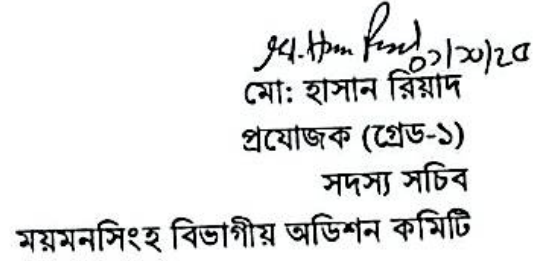 মো: হাসান রিয়াদ
প্রযোজক (গ্রেড-১)
সদস্য সচিব
ময়মনসিংহ বিভাগীয় অডিশন কমিটি